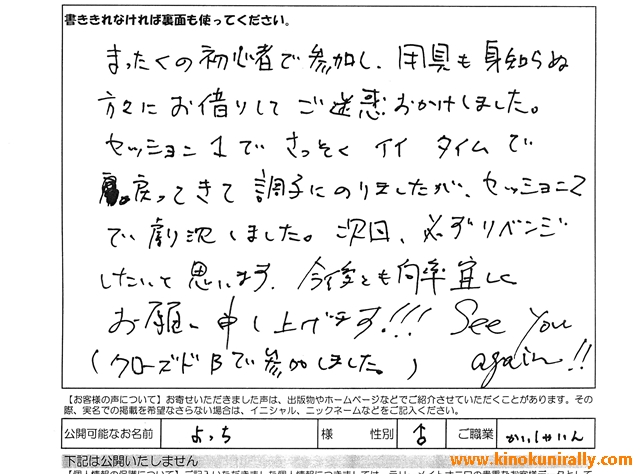 書ききれなければ裏面も使ってください。
まったくの初心者で参加し、用具も見知らぬ
方々にお借りしてご迷惑おかけしました。
セッション1でさっそくイイタイムで
戻ってきて調子にのりましたが、セッション2
で劇沈しました。次回、必ずリベンジ
したいと思います。今後とも何卒宜しく
お願い申し上げます!!! See You
(クローズドBで参加しました) again!!
【お客様の声について】お寄せいただきました声は、出版物やホームページなどでご紹介させていただくことがあります。その
際、実名での掲載を希望なさらない場合は、イニシャル、ニックネームなどをご記入ください。
公開可能なお名前 よっち 様 性別 ♂ ご職業 かいしゃいん
下記は公開いたしません
www.kinokunirally.com